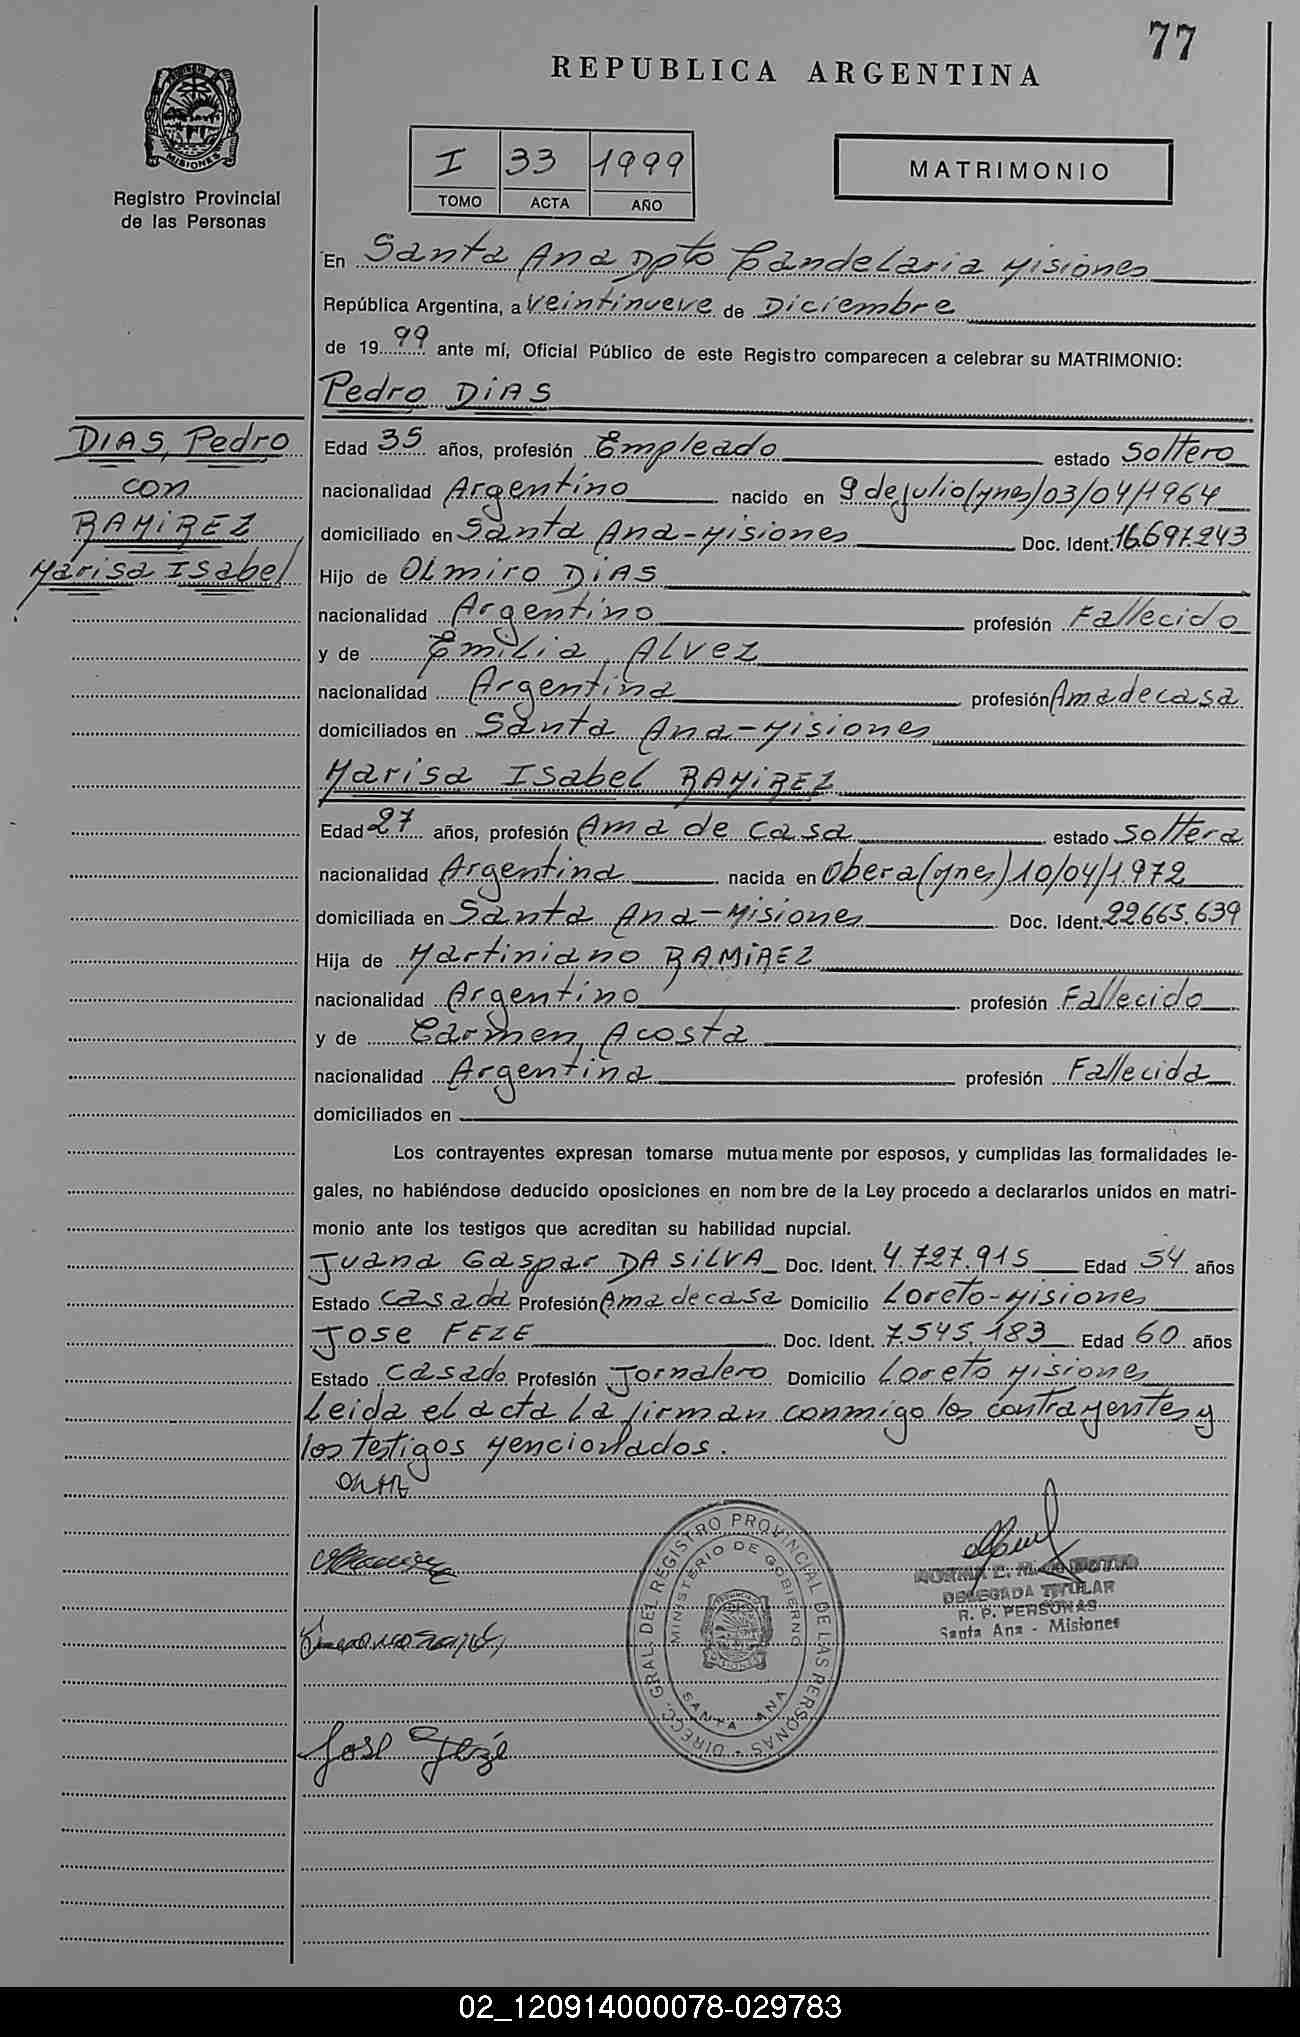 77
REPUBLICA ARGENTINA
MISIONES
Registro Provincial
de las Personas
I 33 1999
TOMO ACTA AÑO
MATRIMONIO
En Santa Ana Dpto Candelaria Misiones
República Argentina, a Veintinueve de Diciembre
de 1999 ante mí, Oficial Público de este Registro comparecen a celebrar su MATRIMONIO:
Pedro DIAS
DIAS, Pedro
con
RAMIREZ
Marisa Isabel
Edad 35 años, profesión Empleado estado Soltero
nacionalidad Argentino nacido en 9 de julio (Mnes) 03/04/1964
domiciliado en Santa Ana-Misiones Doc. Ident. 16.697.243
Hijo de OLmiro DIAS
nacionalidad Argentino profesión Fallecido
y de Emilia ALVEZ
nacionalidad Argentina profesión Ama de casa
domiciliados en Santa Ana-Misiones
Marisa ISabel RAMIREZ
Edad 27 años, profesión Ama de casa estado Soltera
nacionalidad Argentina nacida en Obera (Mnes) 10/04/1972
domiciliada en Santa Ana-Misiones Doc. Ident. 22.665.639
Hija de Martiniano RAMIREZ
nacionalidad Argentino profesión Fallecido
y de Carmen Acosta
nacionalidad Argentina profesión Fallecida
domiciliados en
Los contrayentes expresan tomarse mutuamente por esposos, y cumplidas las formalidades le-
gales, no habiéndose deducido oposiciones en nombre de la Ley procedo a declararlos unidos en matri-
monio ante los testigos que acreditan su habilidad nupcial.
Juana Gaspar DA SILVA Doc. Ident. 4.727.915 Edad 54 años
Estado Casada Profesión Ama de casa Domicilio Loreto-Misiones
Jose FEZE Doc. Ident. 7.545.183 Edad 60 años
Estado Casado Profesión Jornalero Domicilio Loreto Misiones
Leida el acta La firman conmigo los contrayentes y
los testigos Mencionados.
DIRECC. GRAL. DEL REGISTRO PROVINCIAL DE LAS PERSONAS
MINISTERIO DE GOBIERNO
SANTA ANA
DELEGADA TITULAR
R. P. PERSONAS
Santa Ana - Misiones
José Fezé
02_120914000078-029783